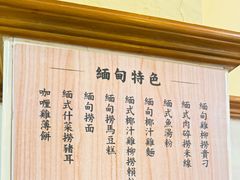 緬甸特色
緬甸雞柳撈貴刁
緬式肉碎撈米線
緬式魚湯粉
緬式椰汁雞麵
緬式椰汁雞柳撈賴
緬甸撈馬豆糕
緬甸撈面
緬式什菜撈豬耳
咖喱雞薄餅